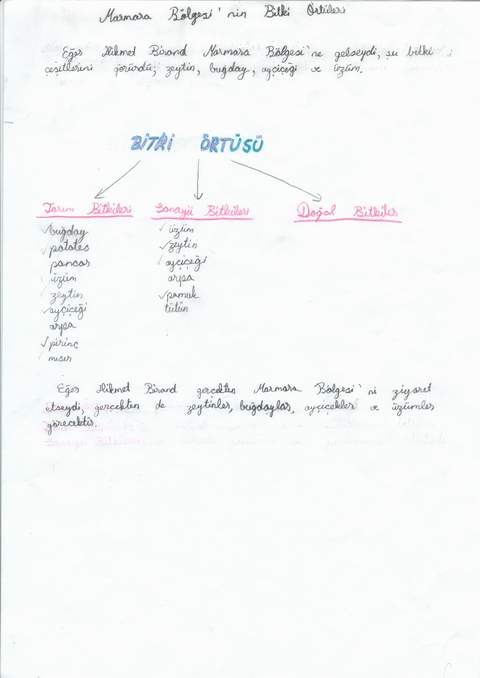 Marmara Bölgesi'nin Bitki Örtüleri
Eğer Hikmet Birand Marmara Bölgesi'ne gelseydi, şu bitki
çeşitlerini görürdü; zeytin, buğday, ayçiçeği ve üzüm.
BİTKİ ÖRTÜSÜ
Tarım Bitkileri Sanayii Bitkileri Doğal Bitkiler
buğday üzüm
patates zeytin
pancar ayçiçeği
üzüm arpa
zeytin pamuk
ayçiçeği tütün
arpa
pirinç
mısır
Eğer Hikmet Birand gerçekten Marmara Bölgesi'ni ziyaret
etseydi, gerçekten de zeytinler, buğdaylar, ayçiçekleri ve üzümler
görecekti.